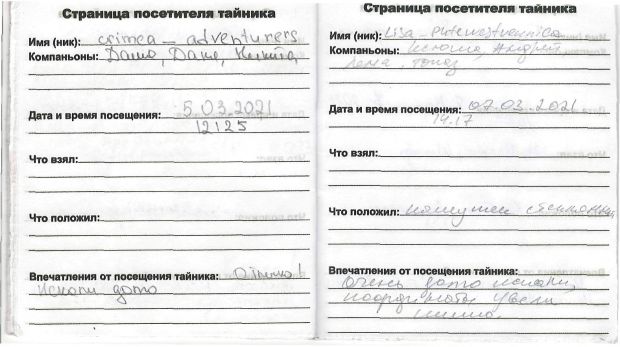 Страница посетителя тайника
Имя (ник): crimea_adventurers
Компаньоны: Даша, Даша, Никита,
Дата и время посещения: 5.03.2021
12:25
Что взял:
Что положил:
Впечатления от посещения тайника: Отлично!
Искали долго
Страница посетителя тайника
Имя (ник): Lisa_Putewestvennica
Компаньоны: Ксюша, Андрей
Лена
Дата и время посещения: 07.03.2021
14.17
Что взял:
Что положил:
Впечатления от посещения тайника:
Очень долго искали,
координаты увели
мимо.